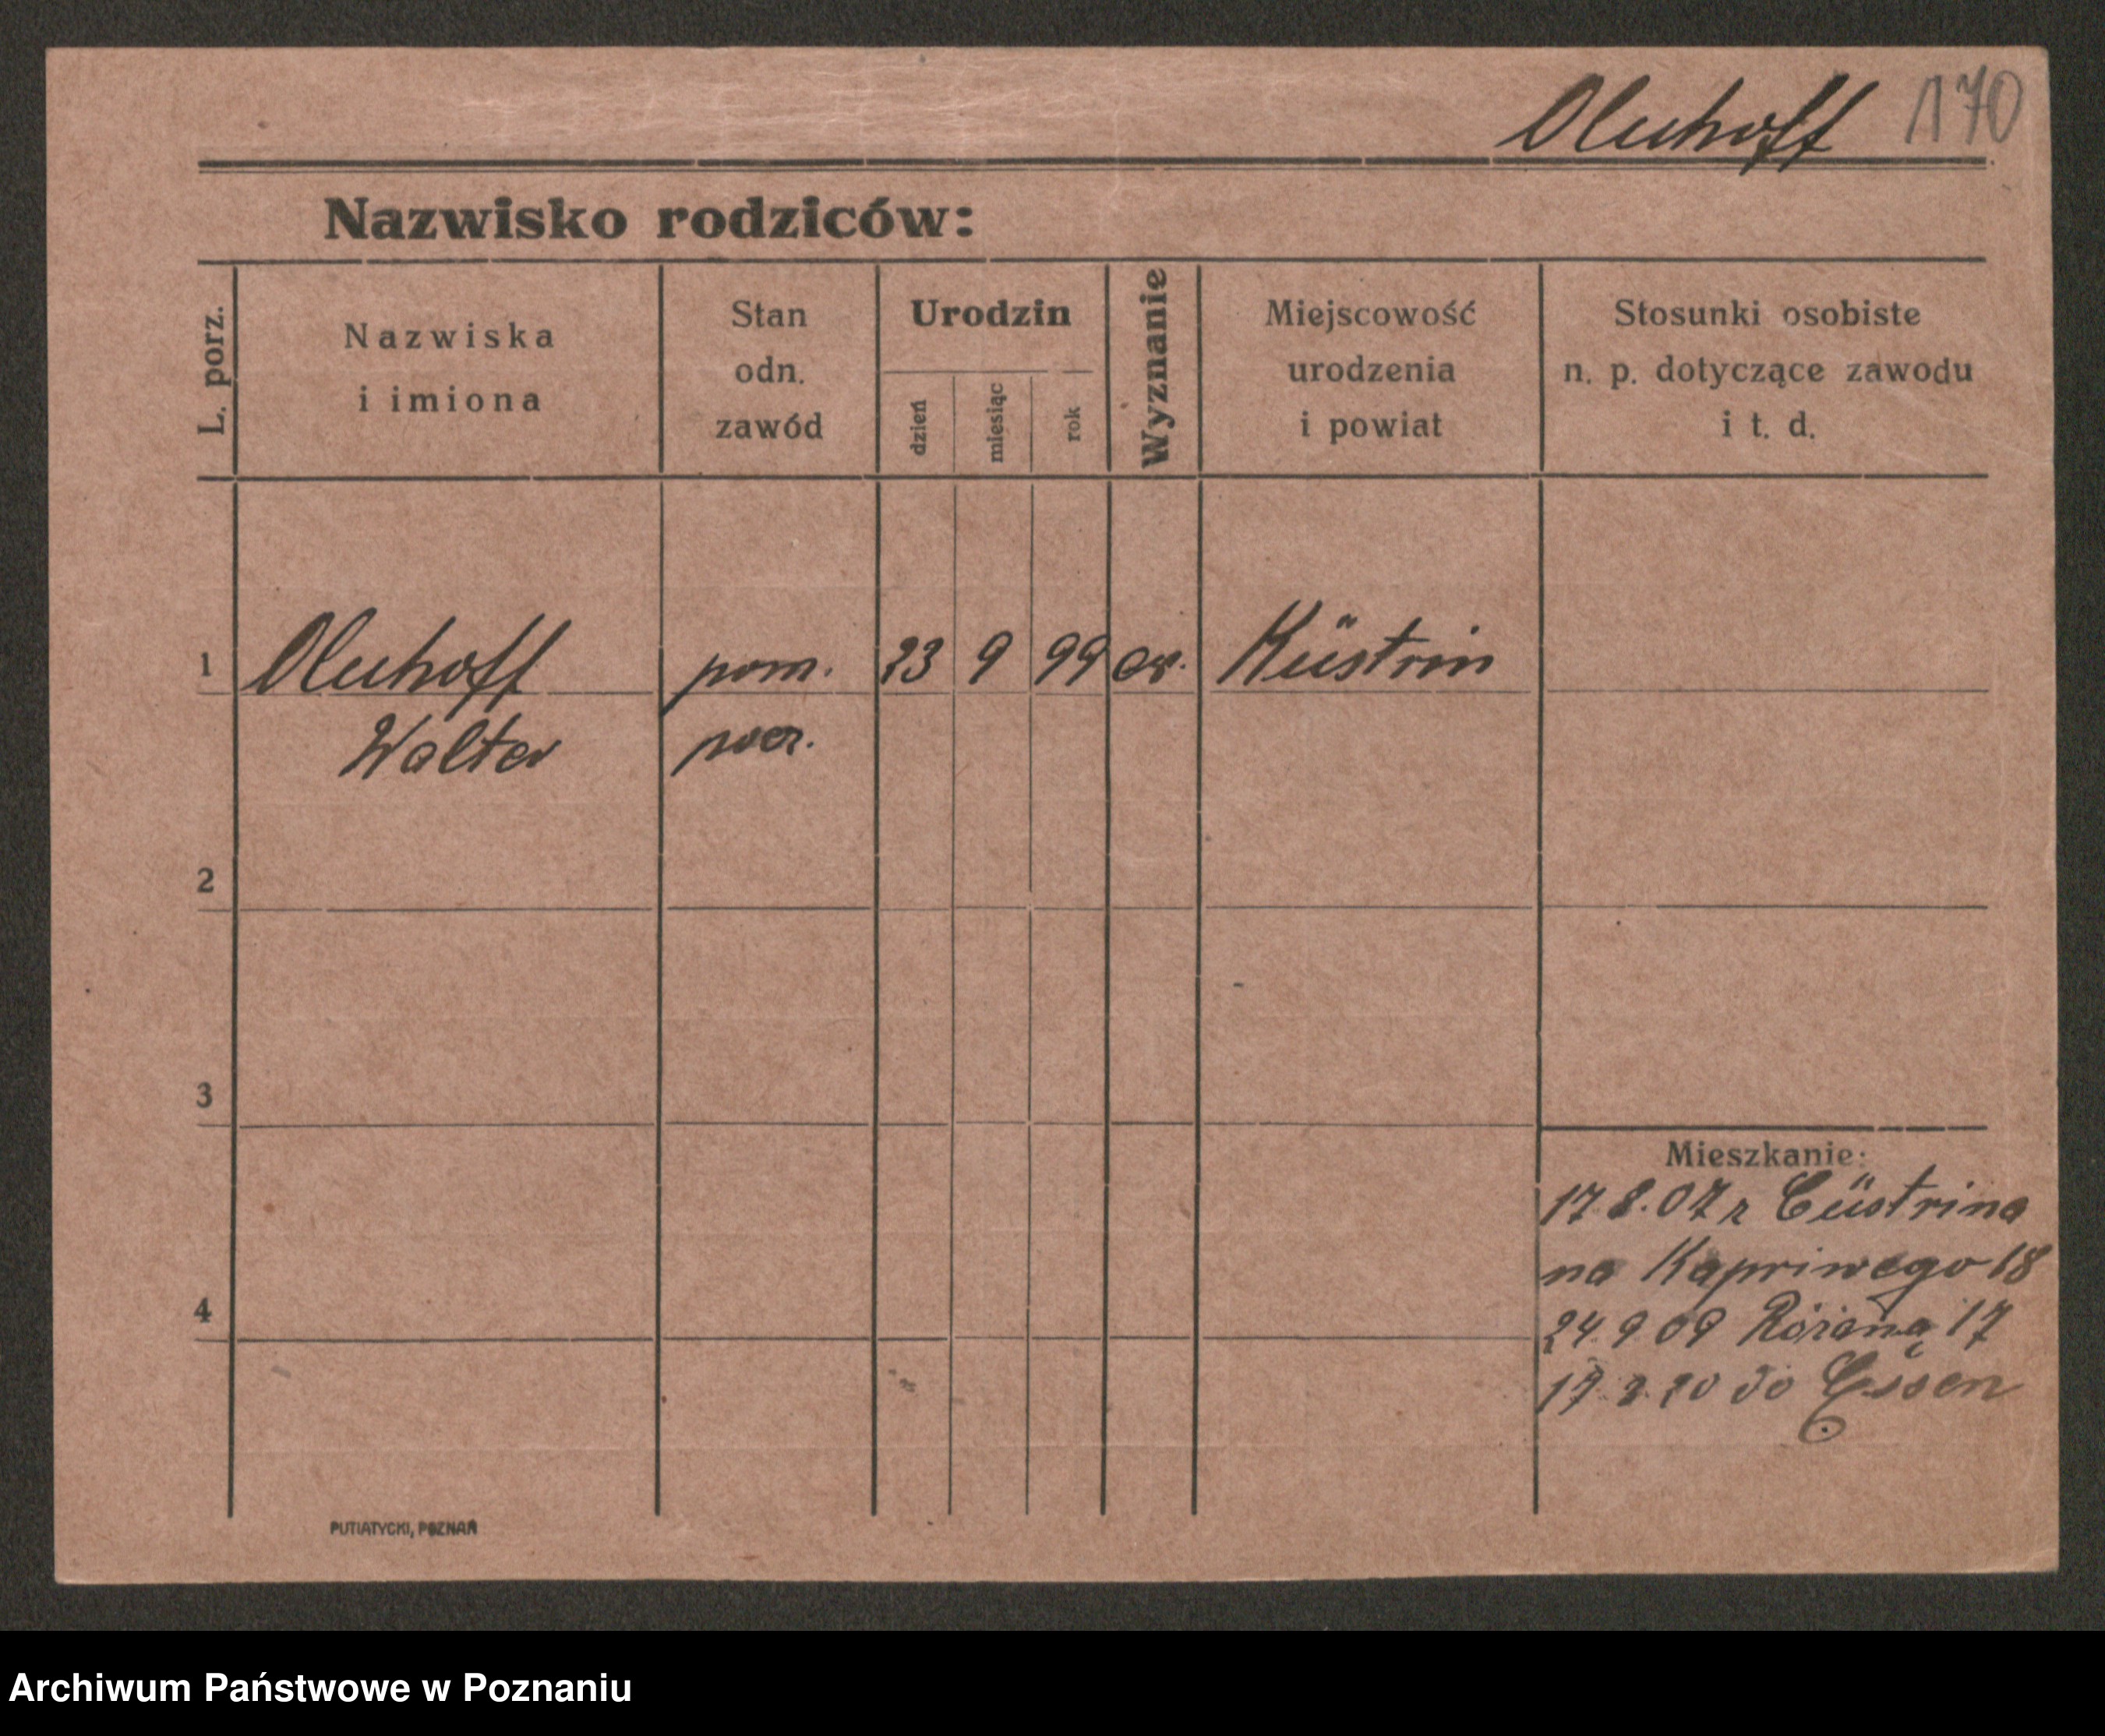 Oluhoff 170
Nazwisko rodziców:
L. porz.
Nazwiska
i imiona
Stan
odn.
zawód
Urodzin
dzień
miesiąc
rok
Wyznanie
Miejscowość
urodzenia
i powiat
Stosunki osobiste
n. p. dotyczące zawodu
i t. d.
1 Oluhoff pom. 23 9 99 ew. Küstrin
Walter
2
3
4
Mieszkanie:
17.8.07 z Cüstrina
na Kapriwego 18
24.9 09 Różana 17
17.2.20 do Essen
PUTIATYCKI, POZNAŃ
Archiwum Państwowe w Poznaniu